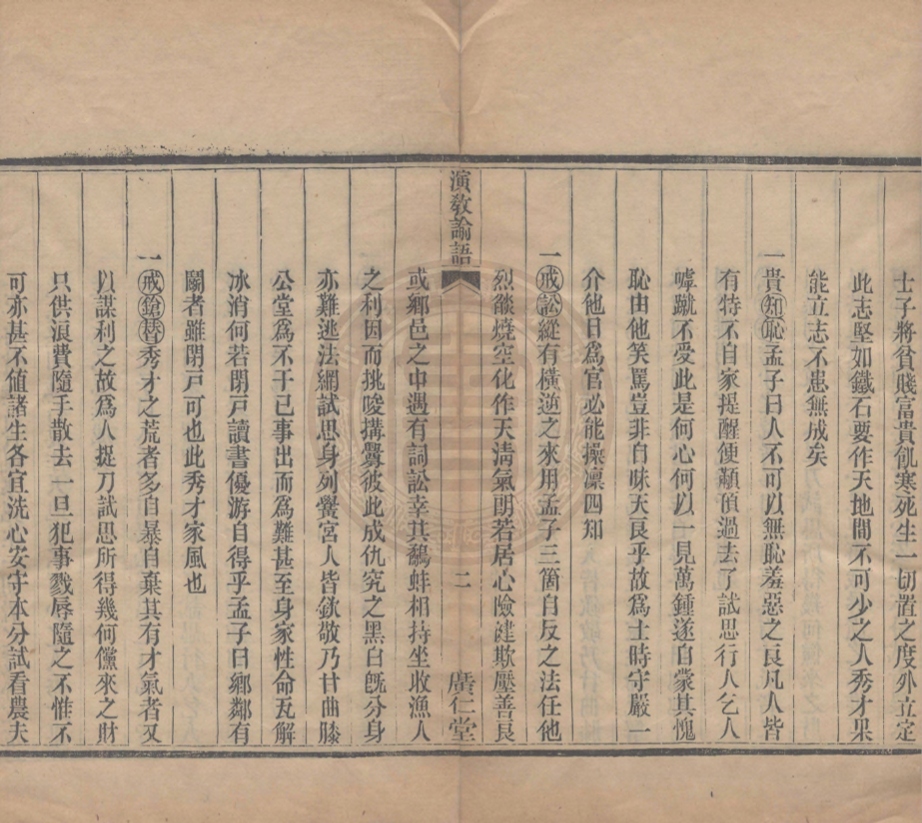 士子將貧賤富貴飢寒死生一切置之度外立定
此志堅如鐵石要作天地間不可少之人秀才果
能立志不患無成矣
一貴知恥孟子曰人不可以無恥羞惡之良凡人皆
有特不自家提醒便顢頇過去了試思行人乞人
嘑蹴不受此是何心何以一見萬鍾遂自蒙其愧
恥由他笑罵豈非自昧天良乎故爲士時守嚴一
介他日爲官必能操凜四知
一戒訟縱有橫逆之來用孟子三箇自反之法任他
烈燄燒空化作天淸氣朗若居心險健欺壓善良
演敎諭語
二
廣仁堂
或鄕邑之中遇有詞訟幸其鷸蚌相持坐收漁人
之利因而挑唆搆釁彼此成仇究之黑白旣分身
亦難逃法網試思身列黌宮人皆欽敬乃甘曲膝
公堂爲不干己事出而爲難甚至身家性命瓦解
冰消何若閉戸讀書優游自得乎孟子曰鄕鄰有
鬬者雖閉戸可也此秀才家風也
一戒鎗替秀才之荒者多自暴自棄其有才氣者又
以謀利之故爲人捉刀試思所得幾何儻來之財
只供浪費隨手散去一旦犯事戮辱隨之不惟不
可亦甚不値諸生各宜洗心安守本分試看農夫